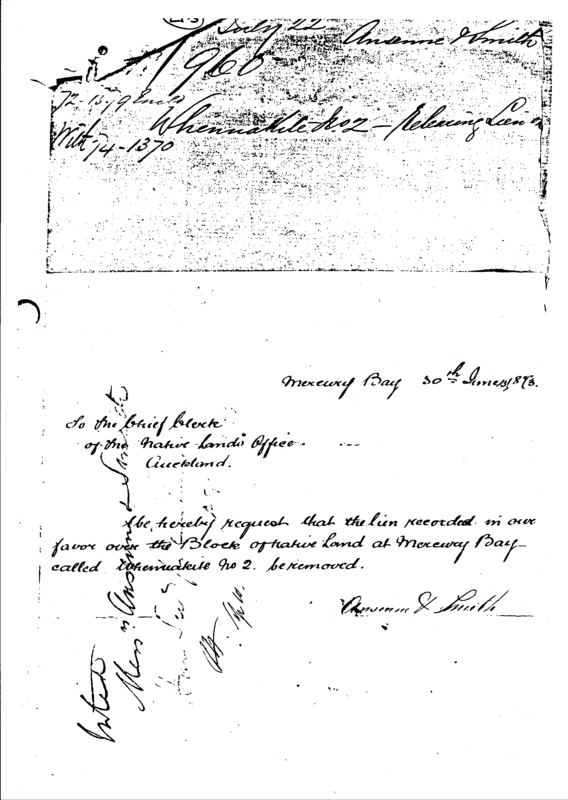 July 22
Ansenne & Smith
960
With 74-1370
Whennakite No 2 - Releasing Lien
Mercury Bay 30th June 1873.
To the Chief Clerk
of the Native Lands Office.
Auckland.
We hereby request that the lien recorded in our
favor over the Block of Native Land at Mercury Bay
called Whennakite No 2. be removed.
Ansenne & Smith
Noted
Messrs Ansenne & Smith